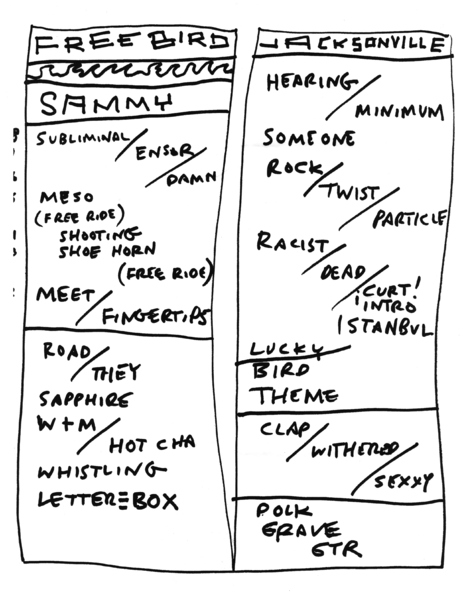 FREE BIRD
SAMMY
SUBLIMINAL/
ENSOR/
DAMN
MESO
(FREE RIDE)
SHOOTING
SHOE HORN
(FREE RIDE)
MEET/
FINGERTIPS
ROAD/
THEY
SAPPHIRE
W+M/
HOT CHA
WHISTLING
LETTERBOX
JACKSONVILLE
HEARING/
MINIMUM
SOMEONE
ROCK/
TWIST/
PARTICLE
RACIST/
DEAD/
¡CURT!
INTRO
ISTANBUL
LUCKY
BIRD
THEME
CLAP/
WITHERED/
SEXXY
POLK
GRAVE
GTR